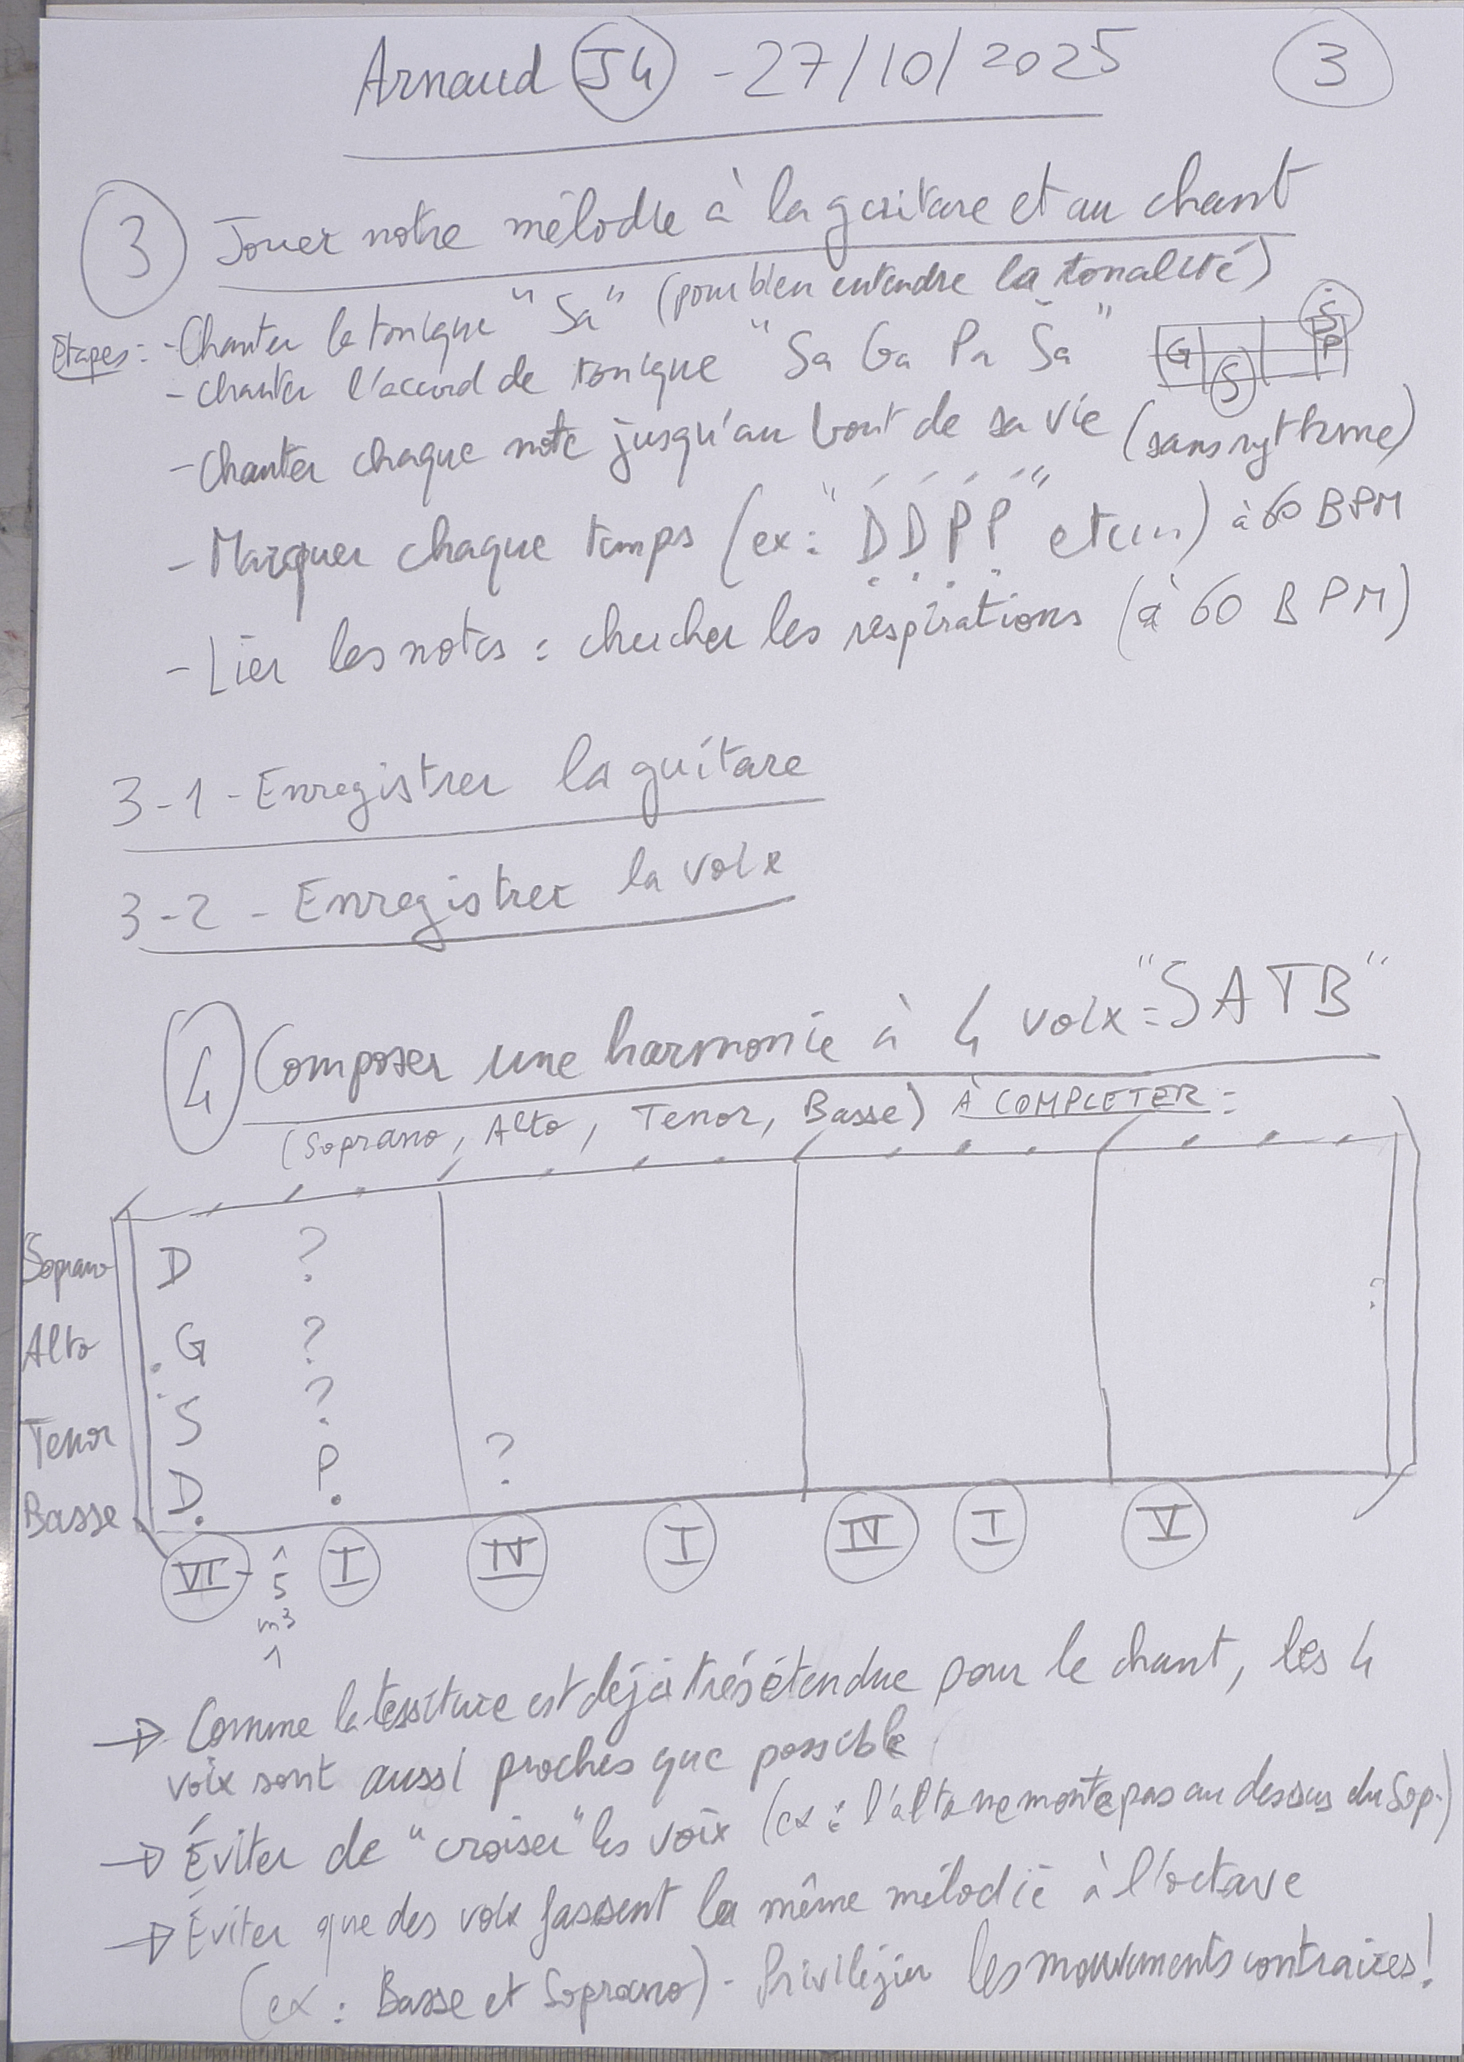 Arnaud J4 - 27/10/2025 3
3 Jouer notre mélodie à la guitare et au chant
Etapes : - Chanter la tonique "Sa" (pour bien entendre la tonalité)
- Chanter l'accord de tonique "Sa Ga Pa Ṡa"
G S P Ṡ
- Chanter chaque note jusqu'au bout de sa vie (sans rythme)
- Marquer chaque temps (ex : "Ḍ Ḍ P̣ P̣" etc...) à 60 BPM
- Lier les notes : chercher les respirations (à 60 BPM)
3-1 - Enregistrer la guitare
3-2 - Enregistrer la voix
4 Composer une harmonie à 4 voix : "SATB"
(Soprano, Alto, Tenor, Basse) À COMPLETER :
Soprano D ?
Alto G ?
Tenor S ?
Basse Ḍ P̣ ?
VI - I IV I IV I V
^
5
m3
1
→ Comme la tessiture est déjà très étendue pour le chant, les 4
voix sont aussi proches que possible
→ Éviter de "croiser" les voix (ex : l'alto ne monte pas au dessus du Sop.)
→ Éviter que des voix fassent la même mélodie à l'octave
(ex : Basse et Soprano) - Privilégier les mouvements contraires !